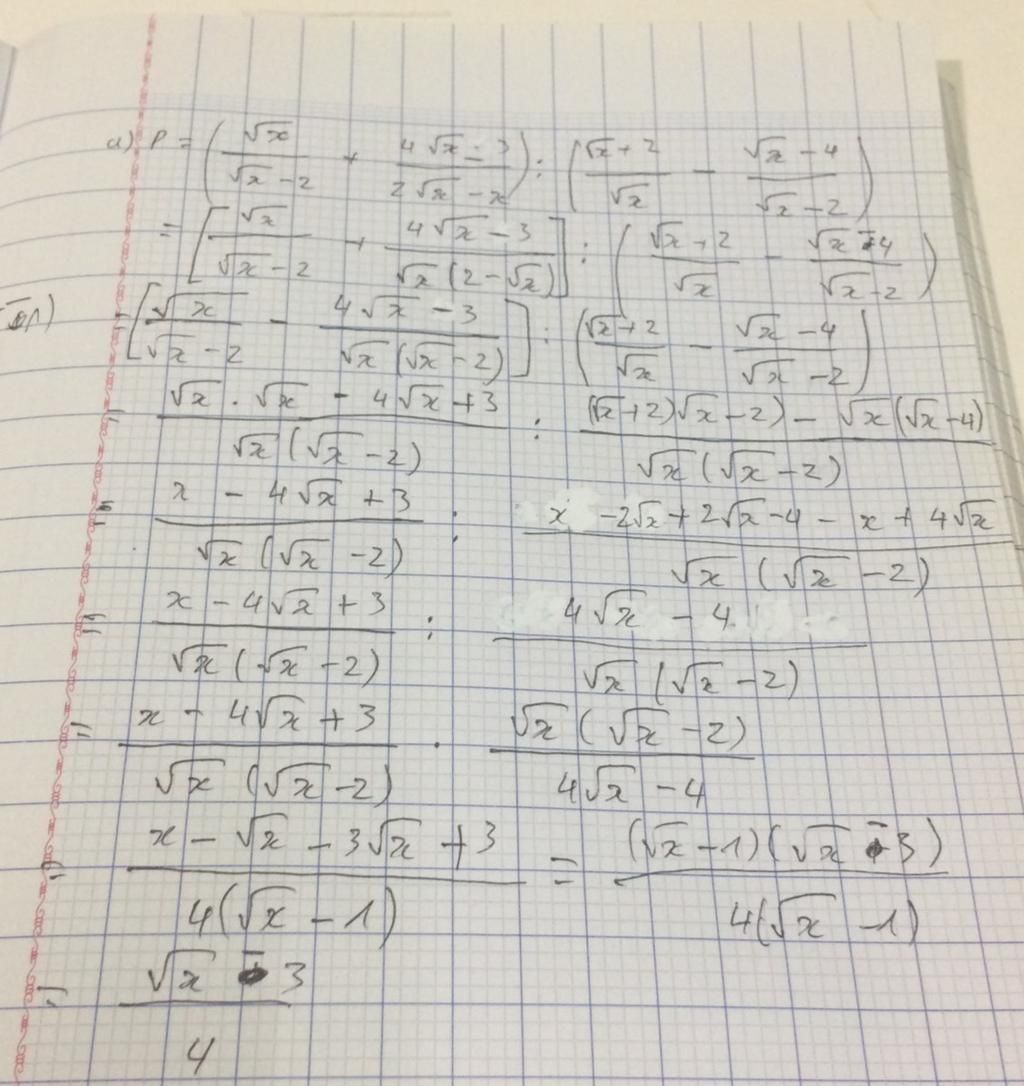 a) P = (√x / (√x - 2) + (4√x - 3) / (2√x - x)) : ((√x + 2) / √x - (√x - 4) / (√x - 2))
= [√x / (√x - 2) + (4√x - 3) / (√x (2 - √x))] : ((√x + 2) / √x - (√x - 4) / (√x - 2))
= [√x / (√x - 2) - (4√x - 3) / (√x (√x - 2))] : ((√x + 2) / √x - (√x - 4) / (√x - 2))
= (√x . √x - 4√x + 3) / (√x (√x - 2)) : ((√x + 2)√x - 2) - √x (√x - 4)) / (√x (√x - 2))
= (x - 4√x + 3) / (√x (√x - 2)) : (x - 2√x + 2√x - 4 - x + 4√x) / (√x (√x - 2))
= (x - 4√x + 3) / (√x (√x - 2)) : (4√x - 4) / (√x (√x - 2))
= (x - 4√x + 3) / (√x (√x - 2)) . (√x (√x - 2)) / (4√x - 4)
= (x - √x - 3√x + 3) / (4(√x - 1)) = ((√x - 1)(√x - 3)) / (4(√x - 1))
= (√x - 3) / 4